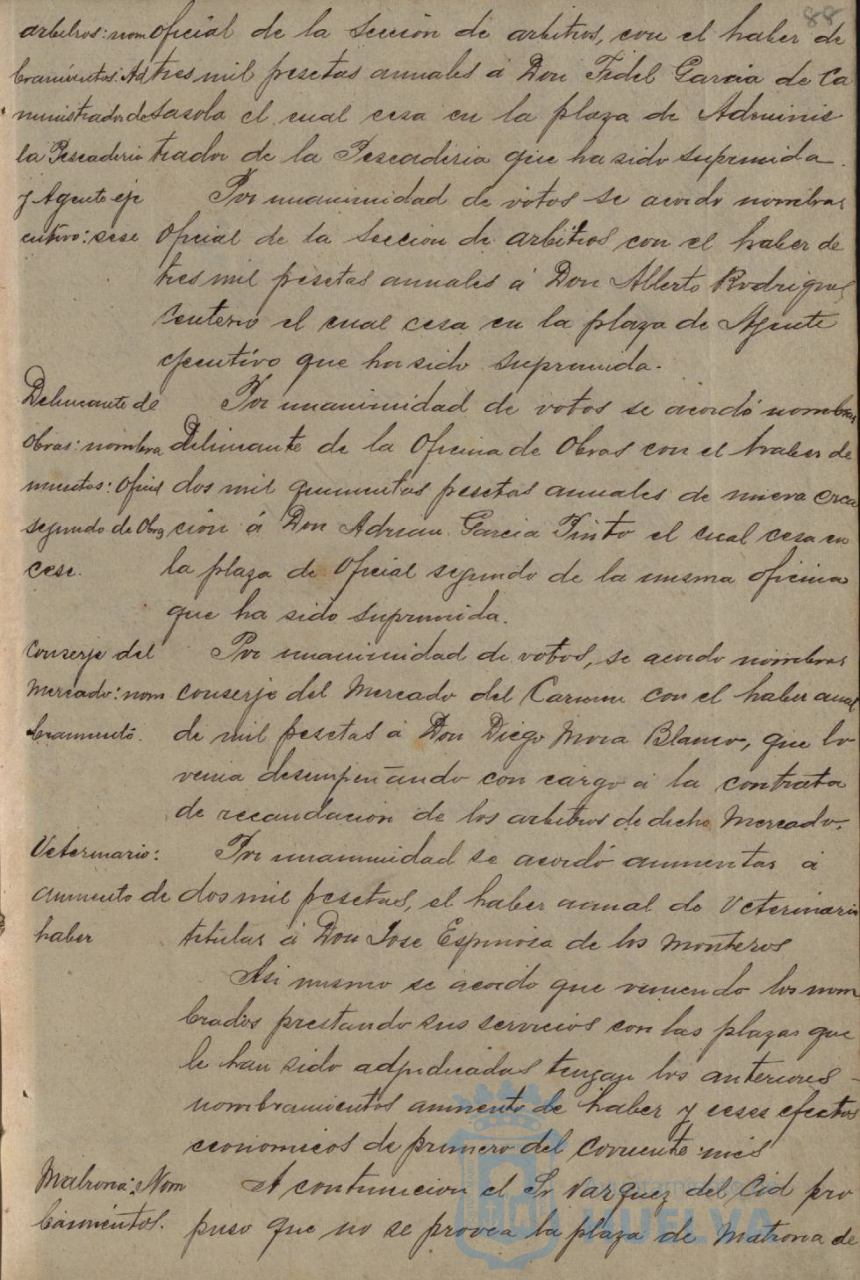 88
arbitros: nom
bramientos: Ad
ministrador de
la Pescaderia
y Agente eje
cutivo: cese
oficial de la Sección de arbitros, con el haber de
tres mil pesetas anuales á Don Fidel Garcia de Ca
sasola el cual cesa en la plaza de Adminis
trador de la Pescaderia que ha sido suprimida.
Por unanimidad de votos se acordo nombrar
Oficial de la Seccion de arbitros con el haber de
tres mil pesetas anuales á Don Alberto Rodriguez
Centeno el cual cesa en la plaza de Agente
ejecutivo que ha sido suprimida.
Delineante de
Obras: nombra
mientos: Oficial
segundo de Obras
cese.
Por unanimidad de votos se acordó nombrar
Delineante de la Oficina de Obras con el haber de
dos mil quinientas pesetas anuales de nueva crea
ción á Don Adrian Garcia Pinto el cual cesa en
la plaza de Oficial segundo de la misma oficina
que ha sido suprimida.
Conserje del
Mercado: nom
bramiento.
Por unanimidad de votos, se acordo nombrar
conserje del Mercado del Carmen con el haber anual
de mil pesetas á Don Diego Mora Blanco, que lo
venia desempeñando con cargo á la contrata
de recaudación de los arbitros de dicho Mercado.
Veterinario:
aumento de
haber
Por unanimidad se acordó aumentar á
dos mil pesetas, el haber anual de Veterinario
titular á Don Jose Espinosa de los Monteros
Asi mismo se acordo que viniendo los nom
brados prestando sus servicios con las plazas que
le han sido adjudicadas tengan los anteriores
nombramientos aumento de haber y ceses efectos
economicos de primero del corriente mes
Matrona: Nom
bramientos.
A continucion el Sr Vazquez del Cid pro
puso que no se provea la plaza de Matrona de
HUELVA